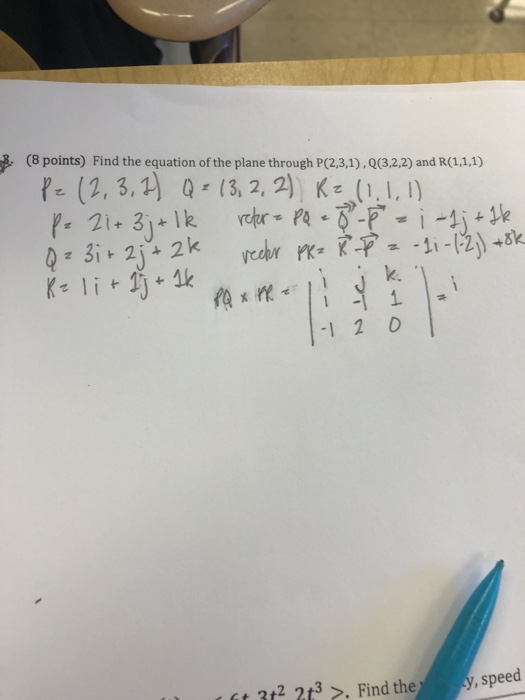 8. (8 points) Find the equation of the plane through P(2,3,1), Q(3,2,2) and R(1,1,1)
P = (2, 3, 1) Q = (3, 2, 2) R = (1, 1, 1)
P = 2i + 3j + 1k vector = PQ = Q - P = i - 1j + 1k
Q = 3i + 2j + 2k vector PR = R - P = -1i - (-2j) + 0k
R = 1i + 1j + 1k
PQ x PR = | i j k | = i
1 -1 1
-1 2 0
6t, 3t² 2t³ >. Find the y, speed